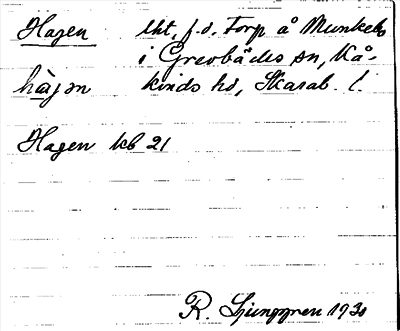 Hagen lht, f.d. torp å Munkebo
i Grevbäcks sn, Kå-
hàgən kinds hd, Skarab. l.
Hagen kb 21
R. Ljunggren 1930